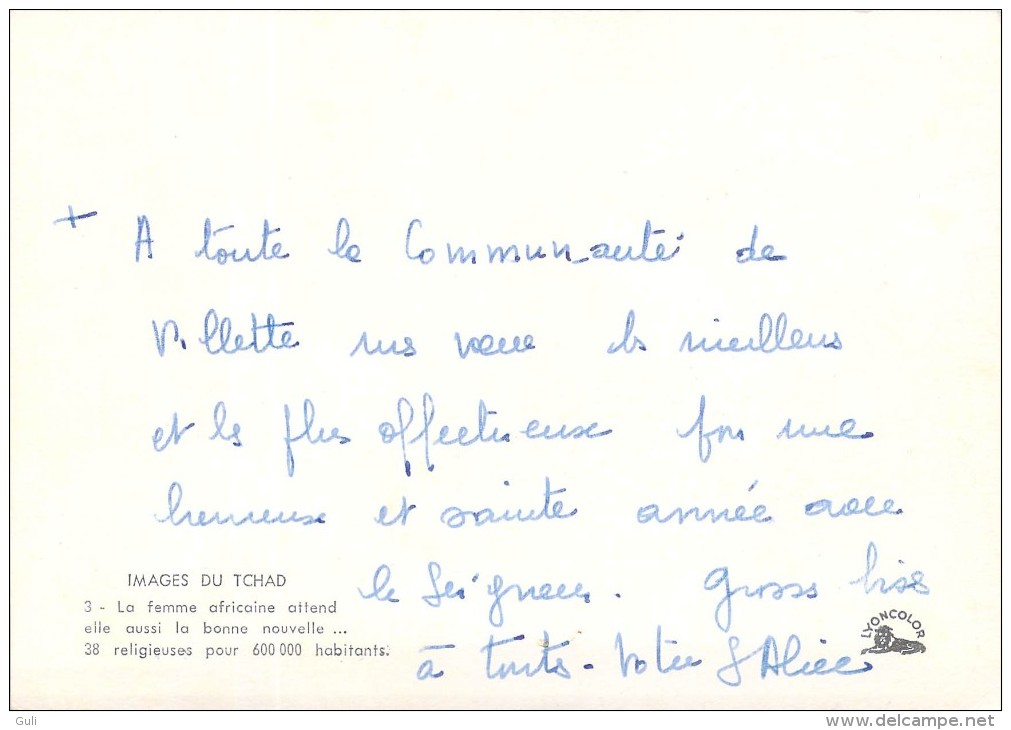 + A toute la Communauté de
Villette mes vœux les meilleurs
et les plus affectueux pour une
heureuse et sainte année avec
le Seigneur. Grosses bises
à toutes - Votre S Alice
IMAGES DU TCHAD
3 - La femme africaine attend
elle aussi la bonne nouvelle ...
38 religieuses pour 600 000 habitants.
LYONCOLOR
Guli
www.delcampe.net